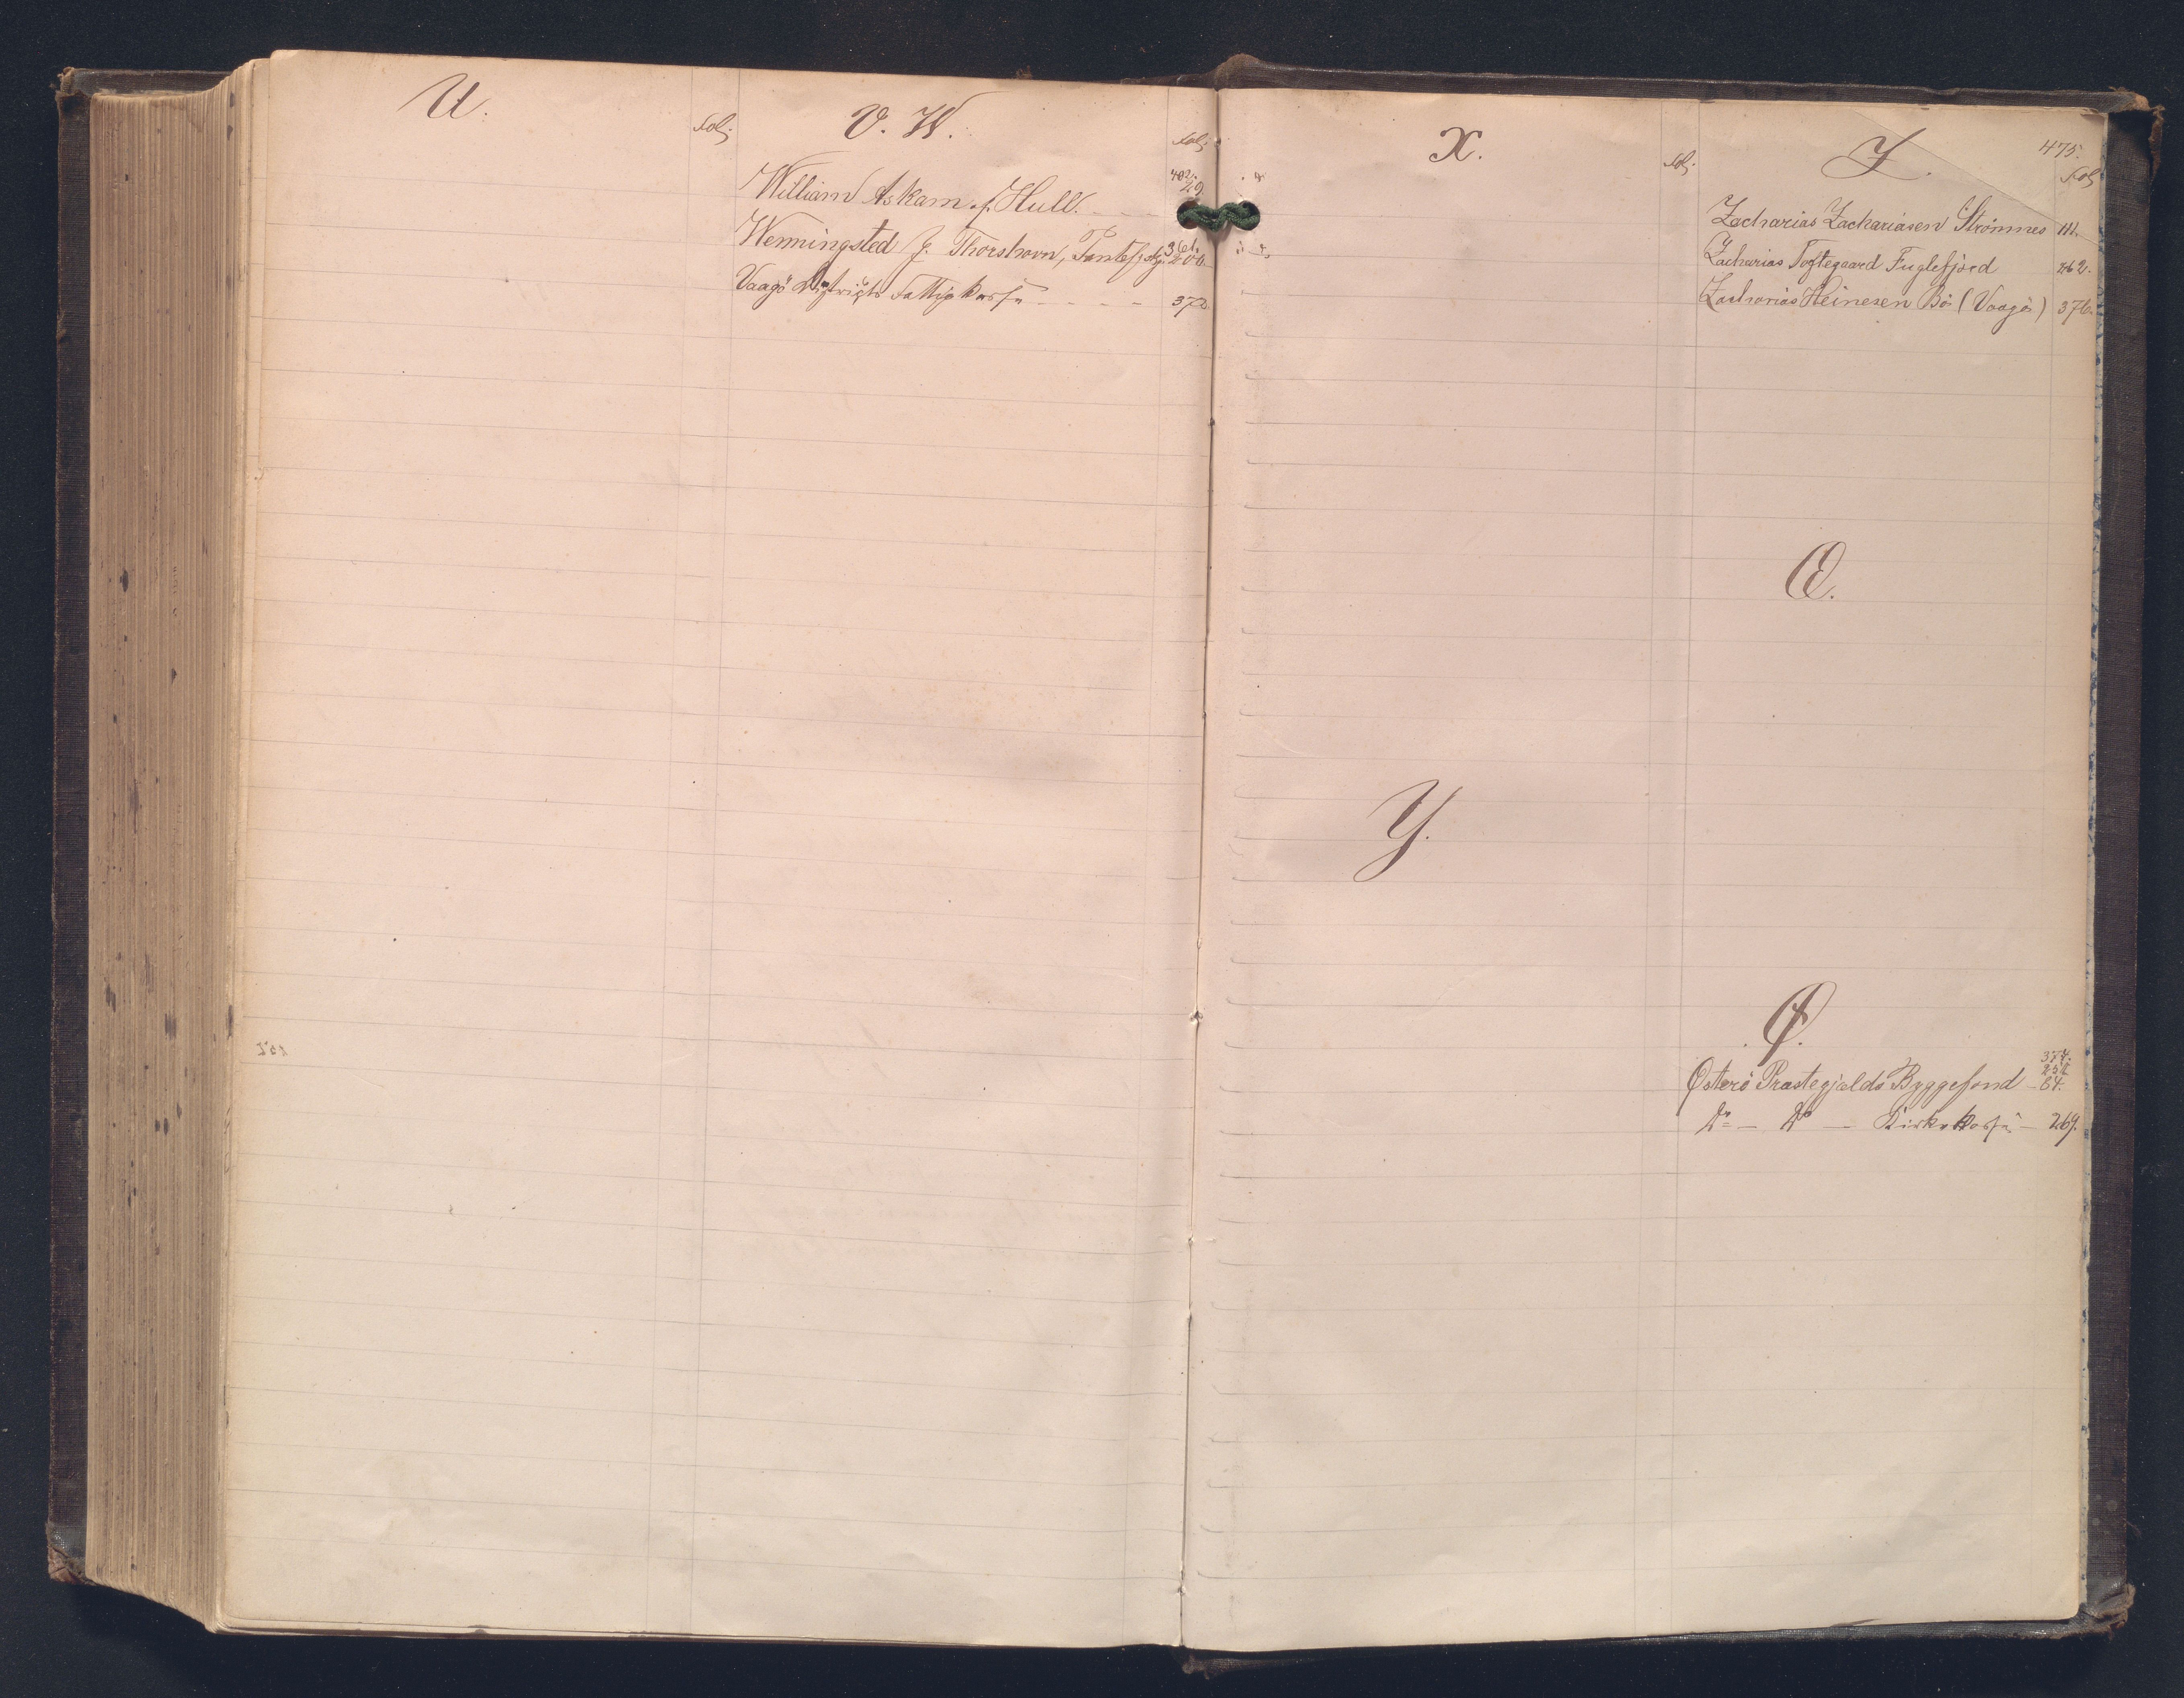 U.
Fol.
V. W.
Fol.
402.
William Askam f. Hull. 29
361.
Wenningsted J. Thorshavn, 200
Vaagö Distrigts Fattigkasse 372
X.
Fol.
475.
Z.
Fol.
Zacharias Zachariasen Strömnes 111.
Zacharias Togtegaard Fuglefjord 262.
Zacharias Heinesen Bö (Vaagö) 376.
Æ.
Y.
Ø.
374.
252
Österö Præstegjælds Byggefond 64.
Do — Do — Kirkekasse — 269.